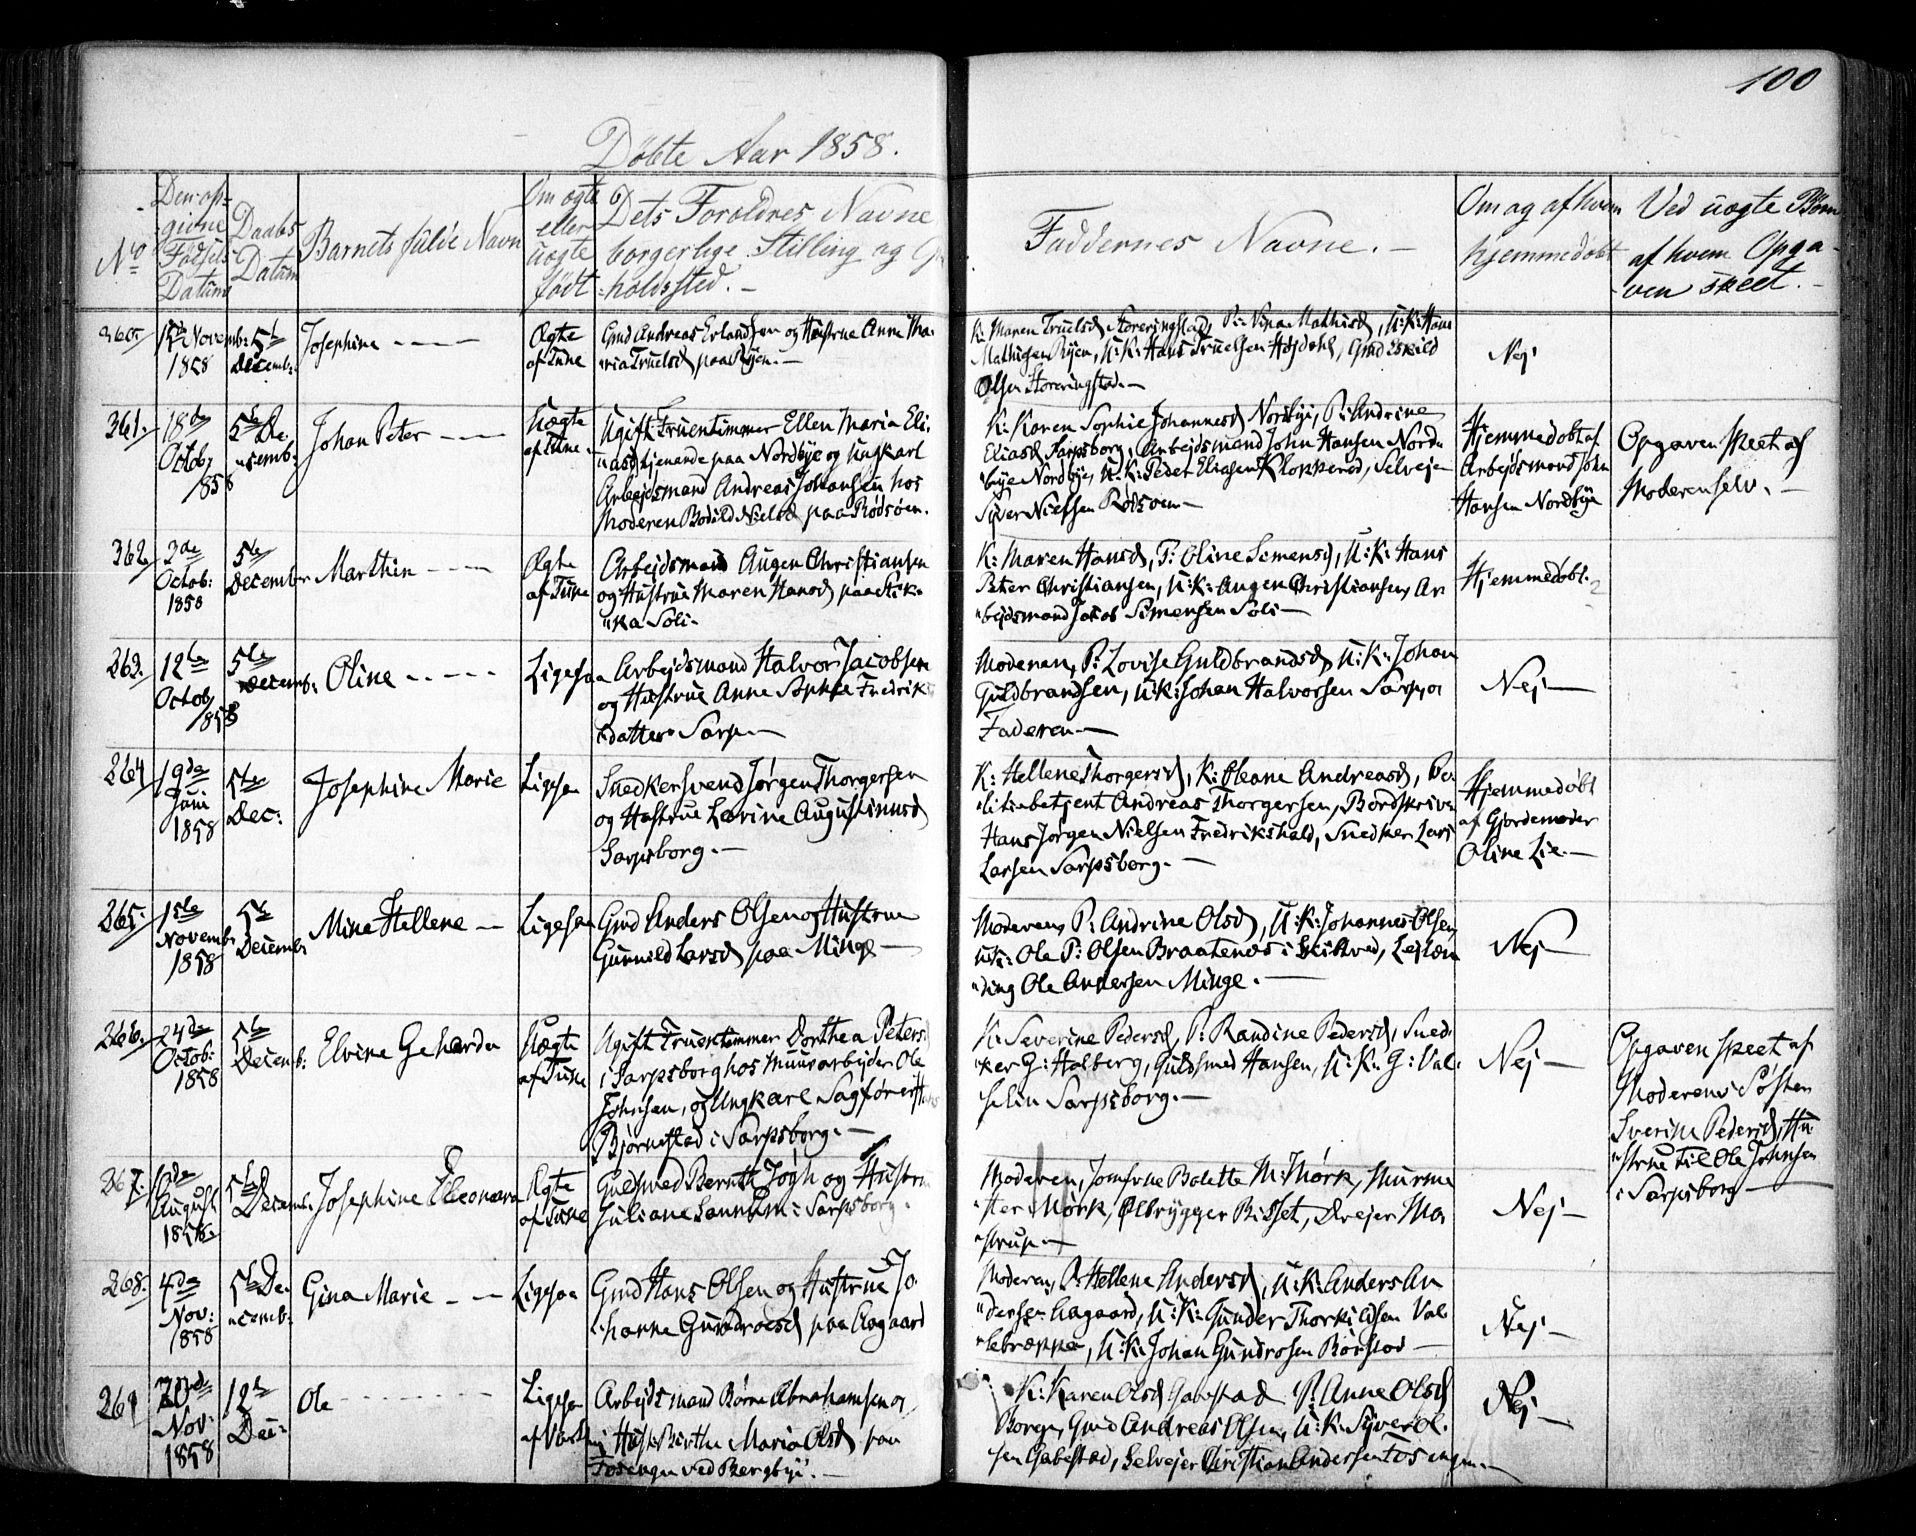 100
Döbte Aar 1858.
No
Den op-
givne
Fødsels
Datum
Daabs
Datum
Barnets fulde Navn
Om ægte
eller
uægte
født
Dets Foræld­res Navne
borgerlige Stilling og Op
holdssted.
Faddernes Navne.
Om og af hvem
hjemmedøbt
Ved uægte Børn
af hvem Opga-
ven skeet.
15de Novemb:
1858
5te
Decemb:
Josephine
Ægte
af Tune
Gmd Andreas Erlandsen og Hustrue Anne Ma-
ria Truelsd paa Ryen.
K: Maren Truelsd Storeringstad, P: Nina Mathisd, U:K: Hans
Mathisen Ryen, U:K: Hans Truelsen Højdahl, Gmd Eskild
Olsen Storeringstad.
Nej
361.
18de
Octob
1858
5te De-
cemb:
Johan Peter
Uægte
af Tune
Ugift Fruentimmer Ellen Maria Eli-
asd tjenende paa Nordbye og Ungkarl
Arbejdsmand Andreas Johansen hos
Moderen Bodild Nielsd paa Rødsøen.
K: Karen Sophie Johannesd Nordbye, P: Andrine
Eliasd Sarpsborg, Arbejdsmand John Hansen Nord-
bye Nordbye, U:K: Peder Eliasen Kloppered, Selvejer
Syver Nielsen Rødsoen
Hjemmedøbt af
Arbejdsmand John
Hansen Nordbye
Opgaven skeet af
Moderen selv.
362
2de
Octob:
1858
5te
December
Marthin
Ægte
af Tune
Arbejdsmand Augen Christiansen
og Hustrue Maren Hansd paa Stik-
ka Soli.
K: Maren Hansd, P: Oline Simensd, U:K: Hans
Peter Christiansen, U:K: Augen Christiansen, Ar-
bejdsmand Jacob Simensen Soli
Hjemmedøbt.
263.
12te
Octob
1858
5te
Decemb:
Oline
Ligesaa
Arbejdsmand Halvor Jacobsen
og Hustrue Anne Sophie Fredriks
datter Sarp.
Moderen, P: Lovise Guldbrandsd, U:K: Johan
Guldbrandsen, U:K: Johan Halvorsen Sarp, og
Faderen.
Nej
264
19de
Juni
1858
5te
Dec:
Josephine Marie
Ligesaa
Snedkersvend Jørgen Thorgersen
og Hustrue Lovine Augustinusd
Sarpsborg.
K: Hellene Thorgersd, K: Oleane Andreasd, Po-
litiebetjent Andreas Thorgersen, Bordskriver
Hans Jørgen Nielsen Fredrikshald, Snedker Lars
Larsen Sarpsborg.
Hjemmedøbt
af Gjordemoder
Oline Lie.
265.
15te
Novemb:
1858
5te
Decemb:
Mina Hellene
Ligesaa
Gmd Anders Olsen og Hustrue
Gunnild Larsd paa Minge
Moderen, P: Andrine Olsd, U:K: Johannes Olsen,
U:K: Ole P: Olsen Braatenes i Skiptved, Lejlæn-
ding Ole Andersen Minge.
Nej
266.
24de
Octob:
1858
5te
Decemb:
Elvine Geharda
Uægte
af Tune
Ugift Fruentimmer Dorthea Petersd
i Sarpsborg hos Muurarbejder Ole
Johnsen, og Ungkarl Sagfører Hans
Bjørnestad i Sarpsborg.
K: Severine Pedersd, P: Randine Pedersd, Sned-
ker G: Holberg, Guldsmed Hansen, U:K: G: Val-
selin Sarpsborg.
Nej
Opgaven skeet af
Moderens Søster
Severine Pedersd, Hu-
strue til Ole Johnsen
i Sarpsborg
267.
August
5te
Decemb:
Josephine Elleonora
Ægte
af Tune
Guldsmed Bernth Jøgh og Hustrue
Juliane i Sarpsborg.
Moderen, Jomfrue Bolette M: Mørk, Murme-
ster Mørk, Ølbrygger Bisset, Drejer Mo-
strup
Nej
268.
4de
Nov:
1858
5te De-
cemb:
Gina Marie
Ligesaa
Gmd Hans Olsen og Hustrue Jo-
hanne Gundrosd paa Aagaard
Moderen, P: Hellene Andersd, U:K: Anders An-
dersen Aagaard, U:K: Gunder Thorkildsen Val-
lebræppe, U:K: Johan Gundrosen Borstad
Nej
269
Nov:
1858
12te
Dec:
Ole
Ligesaa
Arbejdsmand Børre Abrahamsen og
Hust: Birthe Maria Olsd paa
Tosengen ved Bergbye.
K: Karen Olsd Gabestad P: Anne Olsd
Borgen, Gmd Andreas Olsen, U:K: Syver Ol-
sen Gabestad, Selvejer Christian Andersen Tosengen.
Nej